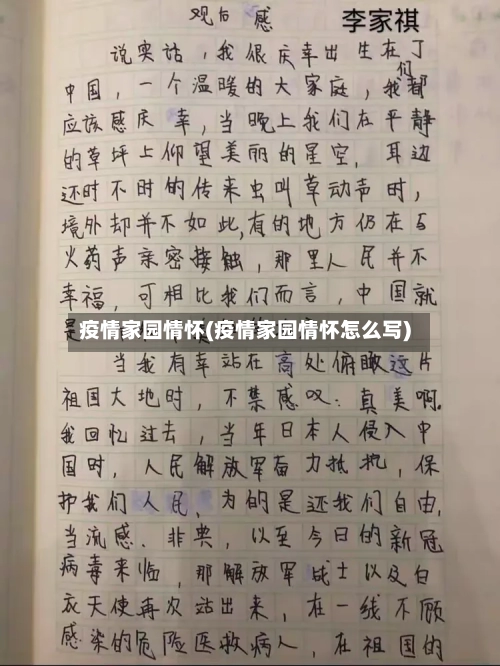 观后感
李家祺
说实话,我很庆幸出生在了
中国,一个温暖的大家庭,我们都
应该感庆幸,当晚上我们在平静
的草坪上仰望美丽的星空,耳边
还时不时的传来虫叫草动声时,
境外却并不如此,有的地方仍在与
火药声亲密接触,那里人民并不
幸福,可相比我们而言,中国就
是
疫情家园情怀(疫情家园情怀怎么写)
当我有幸站在高处俯瞰这片
祖国大地时,不禁感叹:真美啊。
我回忆过去,当年日本人侵入中
国时,人民解放军奋力抵抗,保
护我们人民,为的是还我们自由,
当流感、非典,以至今日的新冠
病毒来临,那解放军战士以及白
衣天使再次站出来,在一线不顾
感染的危险医救病人,在祖国的